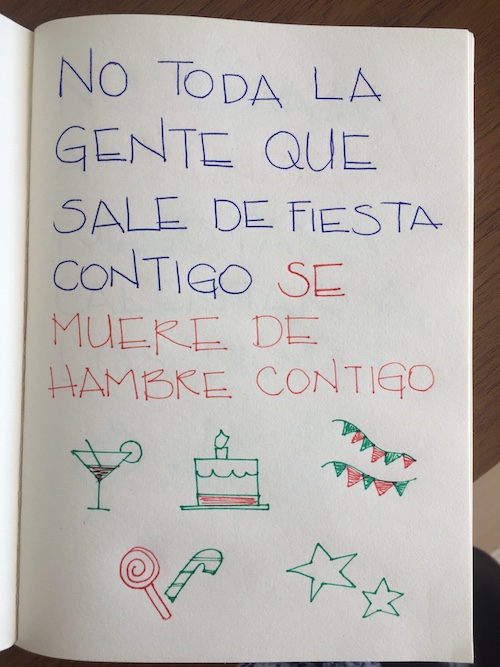 NO TODA LA
GENTE QUE
SALE DE FIESTA
CONTIGO SE
MUERE DE
HAMBRE CONTIGO